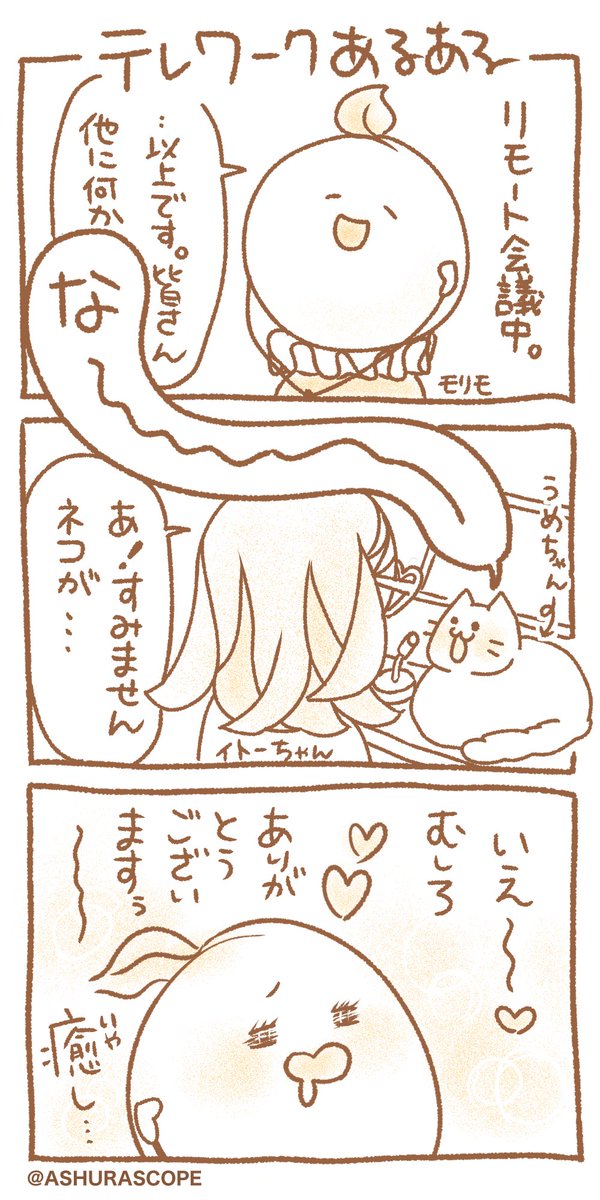 テレワークあるある
リモート会議中。
…以上です。皆さん
他に何か
モリモ
な〜
うめちゃん♂
あ!すみません
ネコが…
イトーちゃん
いえ〜♡
むしろ
ありが
とう
ござい
ますぅ
〜
いや
癒し…
@ASHURASCOPE